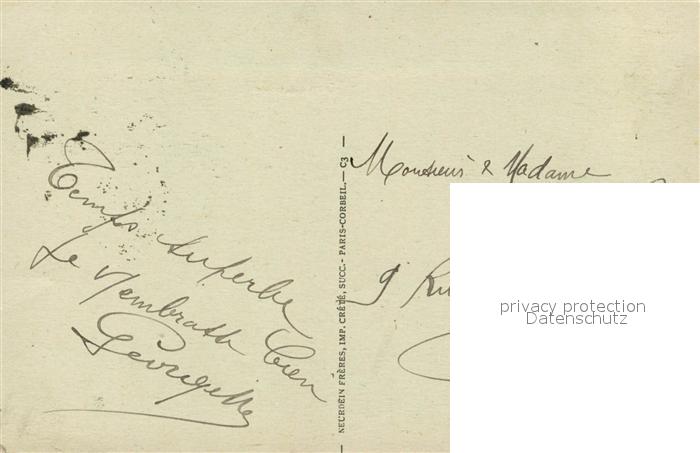 Temps superbe
Je t'embrasse bien
Georgette
NEURDEIN FRÈRES, IMP. CRÉTÉ, SUCC.- PARIS-CORBEIL.— C3 —
Monsieur & Madame
9 Ru
privacy protection
Datenschutz